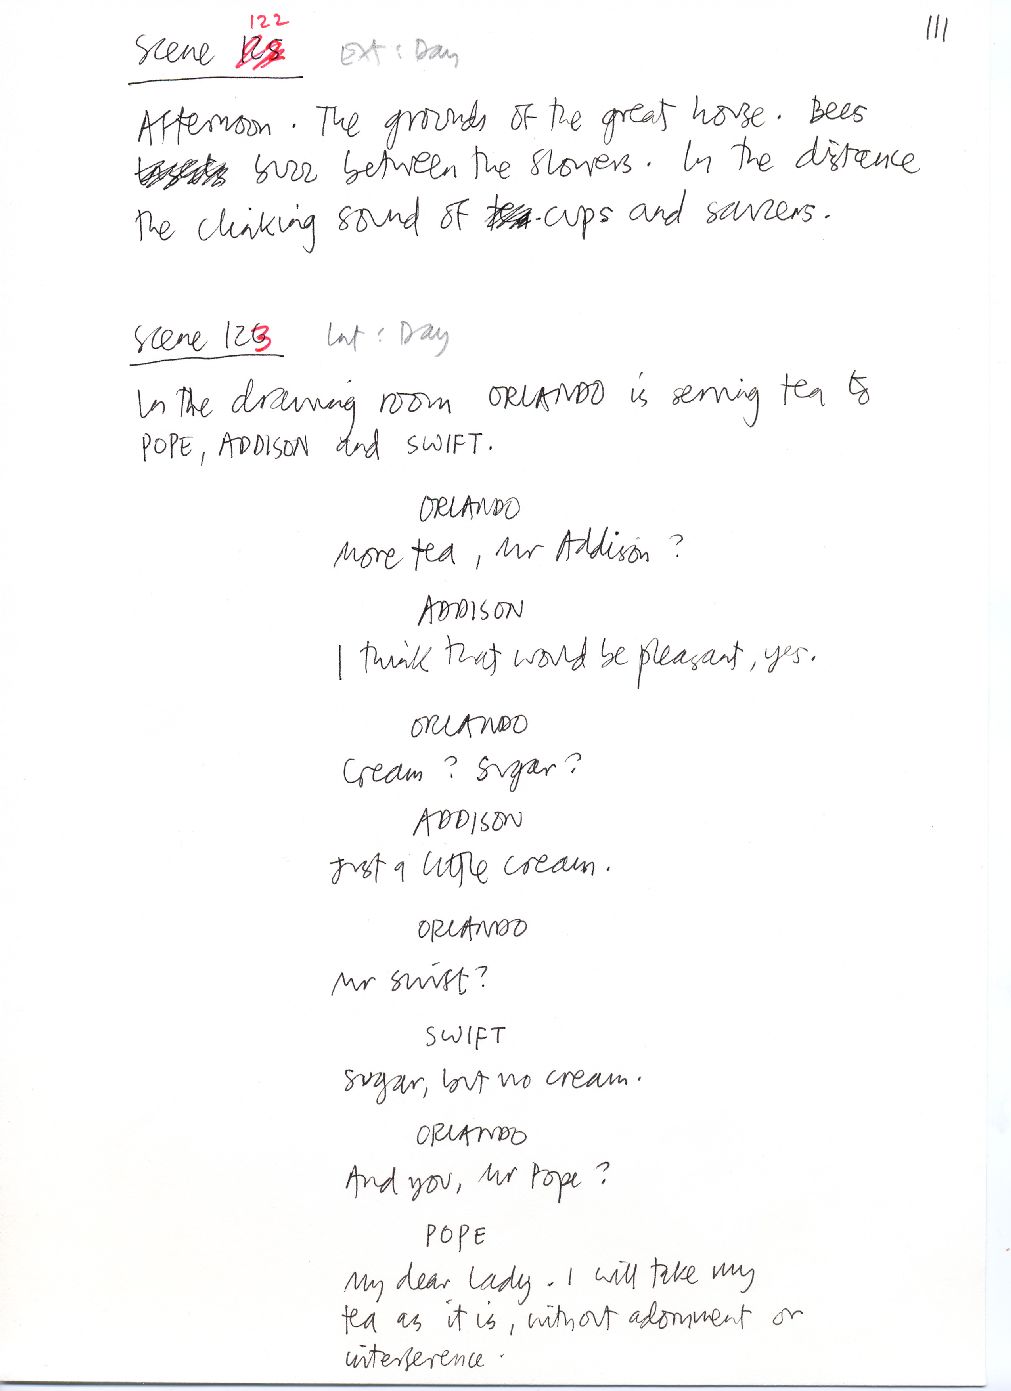 111
122
Scene
Ext : Day
Afternoon. The grounds of the great house. Bees
buzz between the flowers. In the distance
the clinking sound of cups and saucers.
Scene 123
Int : Day
In the drawing room ORLANDO is serving tea to
POPE, ADDISON and SWIFT.
ORLANDO
More tea, Mr Addison?
ADDISON
I think that would be pleasant, yes.
ORLANDO
Cream? Sugar?
ADDISON
Just a little cream.
ORLANDO
Mr Swift?
SWIFT
Sugar, but no cream.
ORLANDO
And you, Mr Pope?
POPE
My dear lady. I will take my
tea as it is, without adornment or
interference.